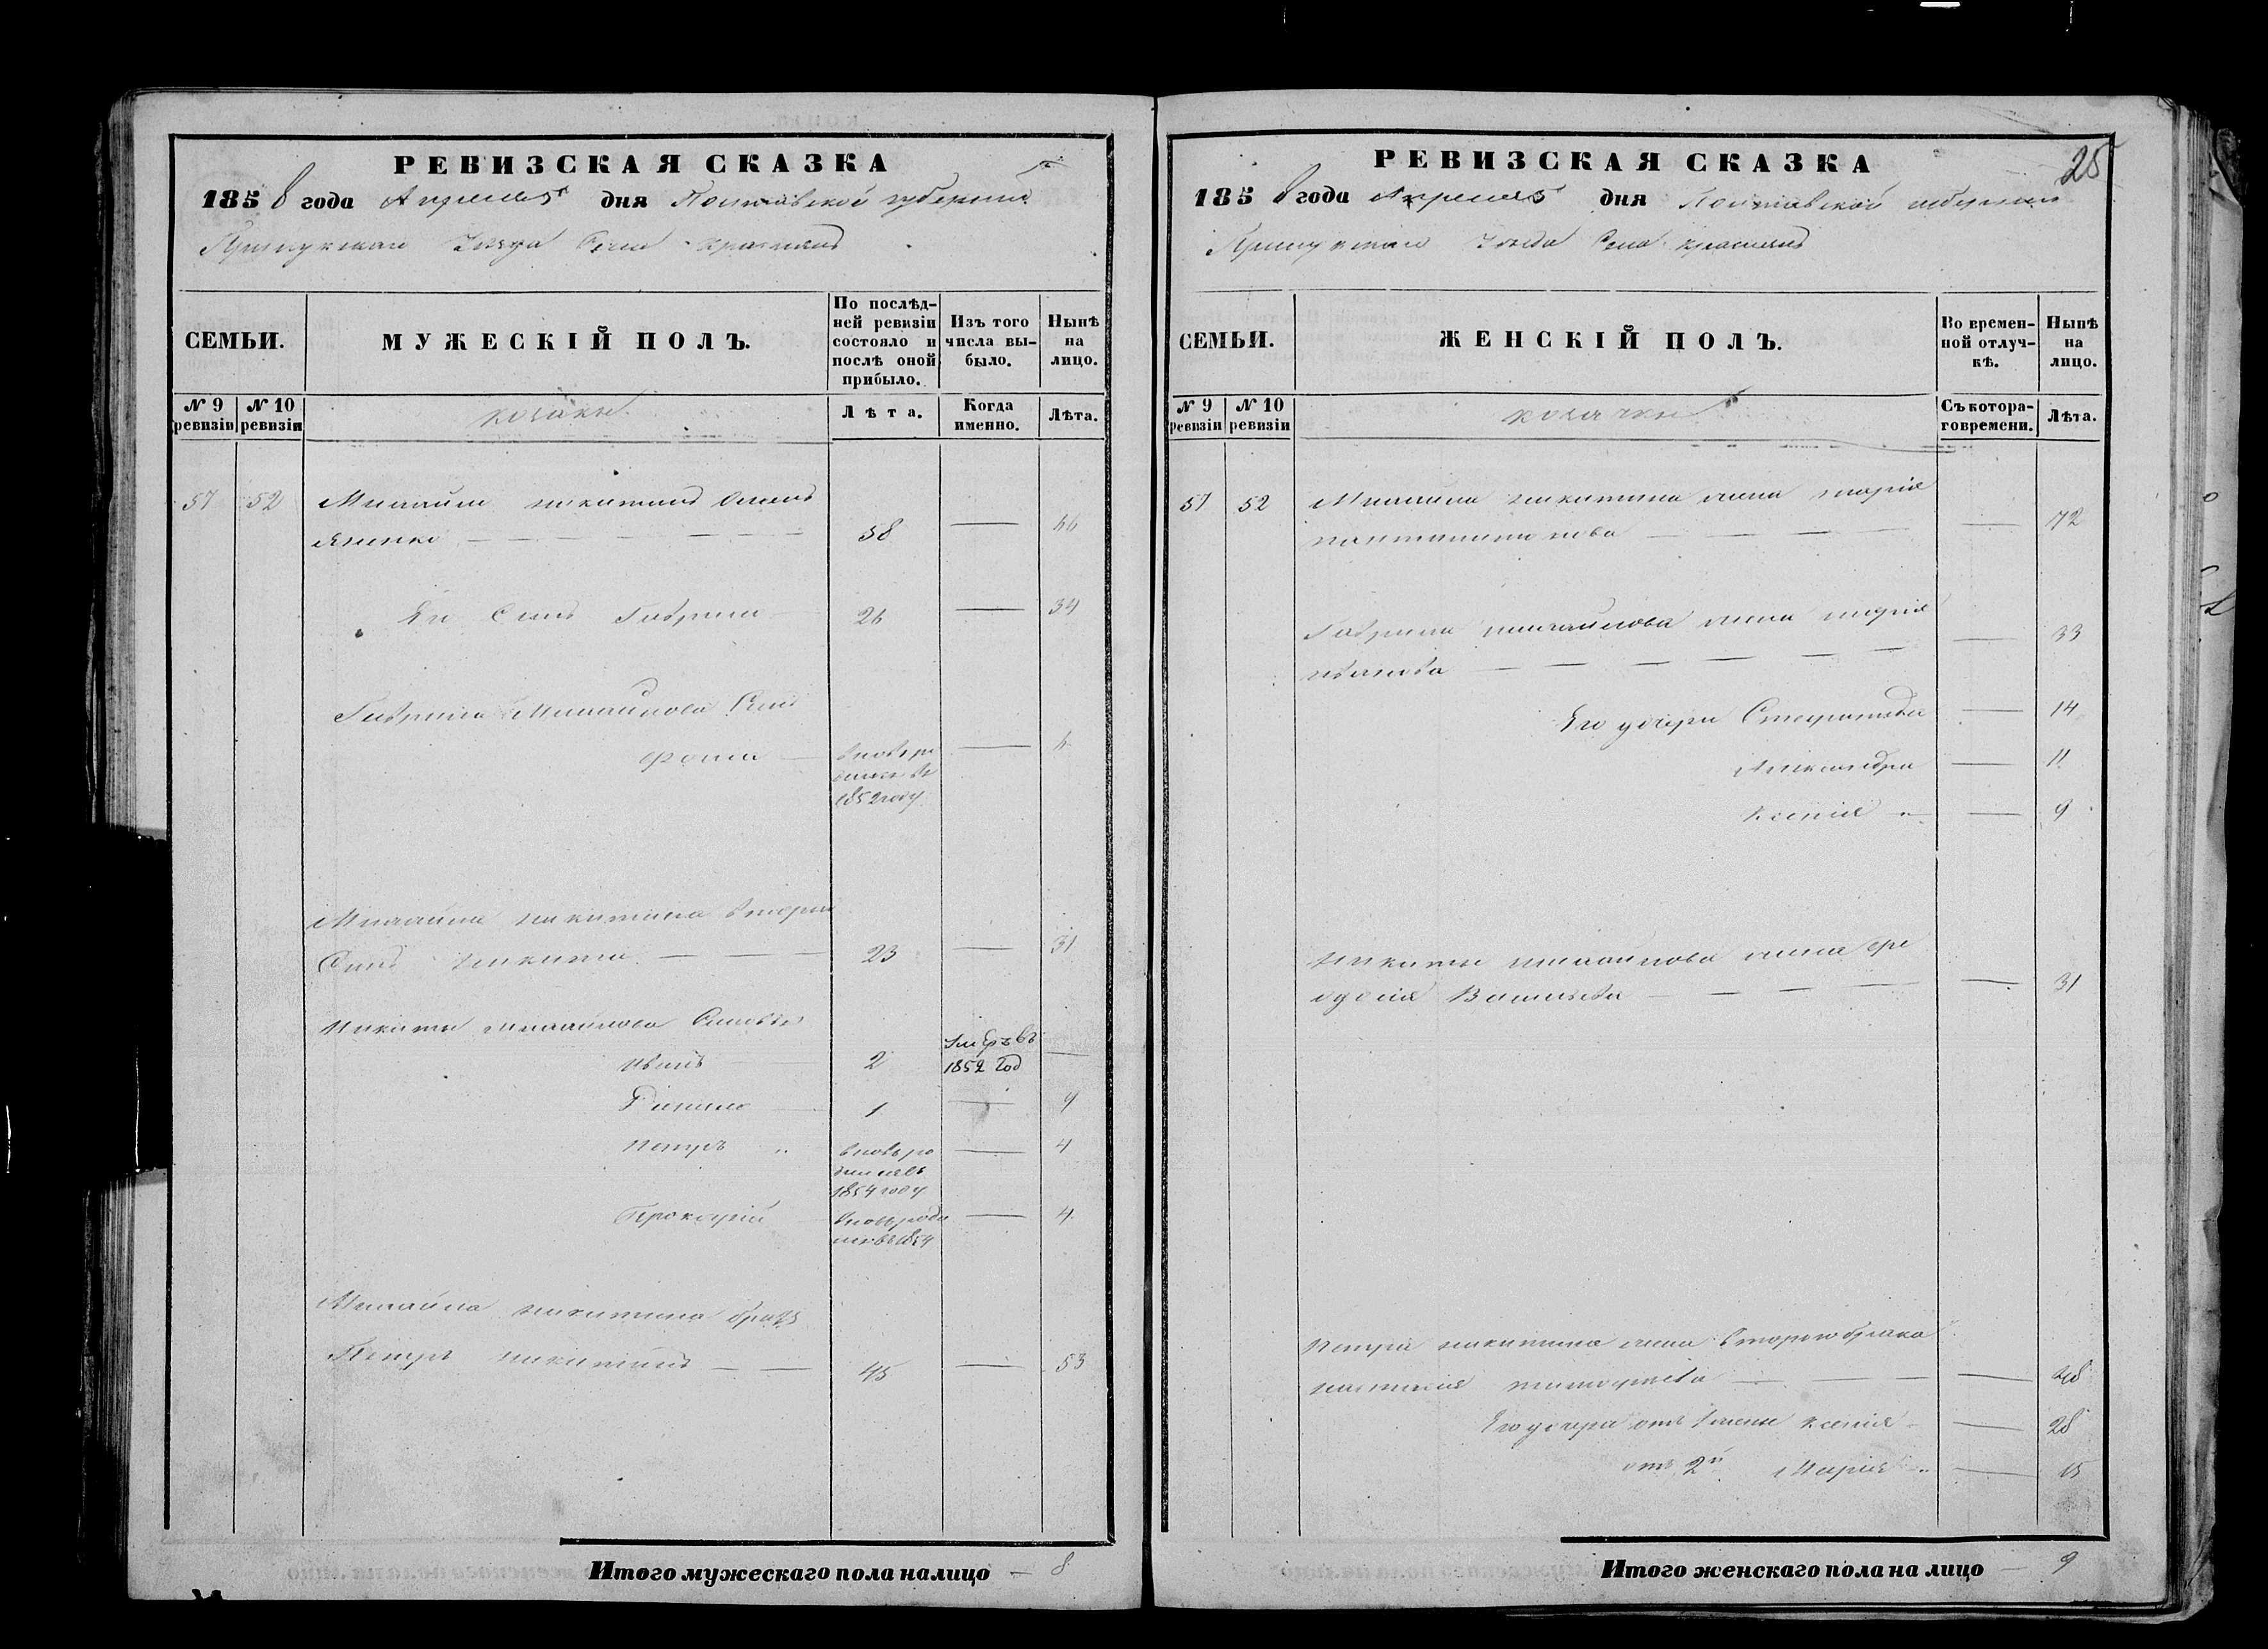 РЕВИЗСКАЯ СКАЗКА
1858 года Апреля 5 дня Полтавской губерніи
Прилукскаго Уезда Села Красляны
СЕМЬИ.
МУЖЕСКІЙ ПОЛЪ.
По послѣд-
ней ревизіи
состояло и
послѣ оной
прибыло.
Изъ того
числа вы-
было.
Нынѣ
на
лицо.
№ 9
ревизіи
№ 10
ревизіи
козаки
Лѣта.
Когда
именно.
Лѣта.
57 52 Михайло Никитинъ
58 — 66
Его Сынъ Гаврило 26 — 34
Гаврила Михайлова Сынъ
Фома — вновь ро
1852 году — 6
Михайла Никитина вторый
Сынъ Никита — 23 — 31
Никиты Михайлова Сыновья
Иванъ 2 Умеръ въ
1852 год —
Данило 1 — 9
Петръ вновь ро
дился въ
1854 году — 4
Прокофій вновь роди
лся въ 1854 — 4
Михайла Никитина братъ
Петръ Никитинъ — 45 — 53
Итого мужескаго пола налицо — 8
РЕВИЗСКАЯ СКАЗКА
25
1858 года Апреля 5 дня Полтавской губерніи
Прилукскаго Уезда Села Красляны
СЕМЬИ.
ЖЕНСКІЙ ПОЛЪ.
Во времен-
ной отлуч-
кѣ.
Нынѣ
на
лицо.
№ 9
ревизіи
№ 10
ревизіи
козачки
Съ котора-
го времени.
Лѣта.
57 52 Михайла Никитина жена Марія
— 72
Гаврила Михайлова жена Марія
Иванова — 33
Его дочери — 14
Александра — 11
Ксенія — 9
Никиты Михайлова жена Фе
одосія Васильева — 31
Петра Никитина жена втораго брака
Настасія Тимофеева — 48
Его дочери отъ 1 жены Ксенія — 28
отъ 2й Марія — 15
Итого женскаго пола на лицо — 9